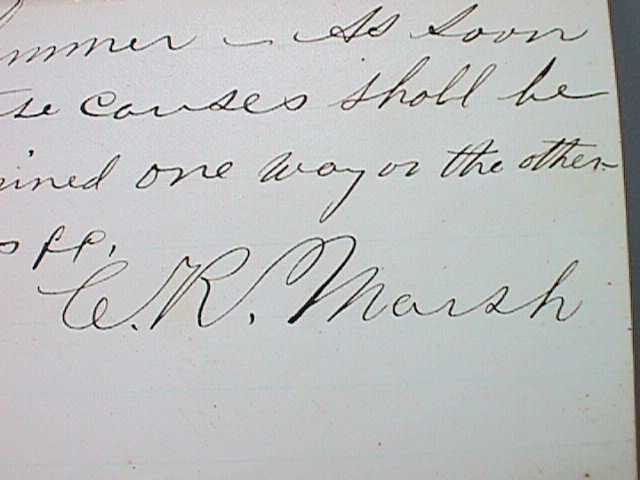 ummer – As soon
se causes shall be
ined one way or the other–
C. R. Marsh